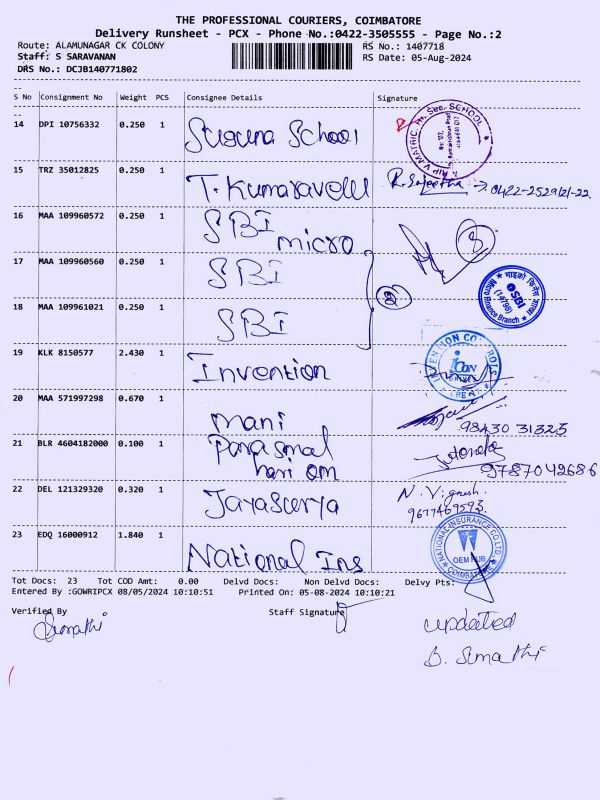 THE PROFESSIONAL COURIERS, COIMBATORE
Delivery Runsheet - PCX - Phone No.:0422-3505555 - Page No.:2
Route: ALAMUNAGAR CK COLONY RS No.: 1407718
Staff: S SARAVANAN RS Date: 05-Aug-2024
DRS No.: DCJB140771802
S No Consignment No Weight PCS Consignee Details Signature
14 DPI 10756332 0.250 1 Suguna School
15 TRZ 35012825 0.250 1 T. Kumaravelu R. Sujeetha → 0422-2529121-22
16 MAA 109960572 0.250 1 SBI micro
17 MAA 109960560 0.250 1 SBI
18 MAA 109961021 0.250 1 SBI
माइको फिनेंस शाखा
SBI
(14798)
Micro Finance Branch
19 KLK 8150577 2.430 1 Invention
INVENTION CONTROLS
icon
20 MAA 571997298 0.670 1 mani
98430 31325
21 BLR 4604182000 0.100 1 Parasmal hari om
9787042686
22 DEL 121329320 0.320 1 Jayasurya N. Vignesh.
9677469593
23 EDQ 16000912 1.840 1 National Ins
NATIONAL INSURANCE CO. LTD.
OEM HUB
COIMBATORE
Tot Docs: 23 Tot COD Amt: 0.00 Delvd Docs: Non Delvd Docs: Delvy Pts:
Entered By :GOWRIPCX 08/05/2024 10:10:51 Printed On: 05-08-2024 10:10:21
Verified By Staff Signature
Sumathi
updated
B. Sumathi